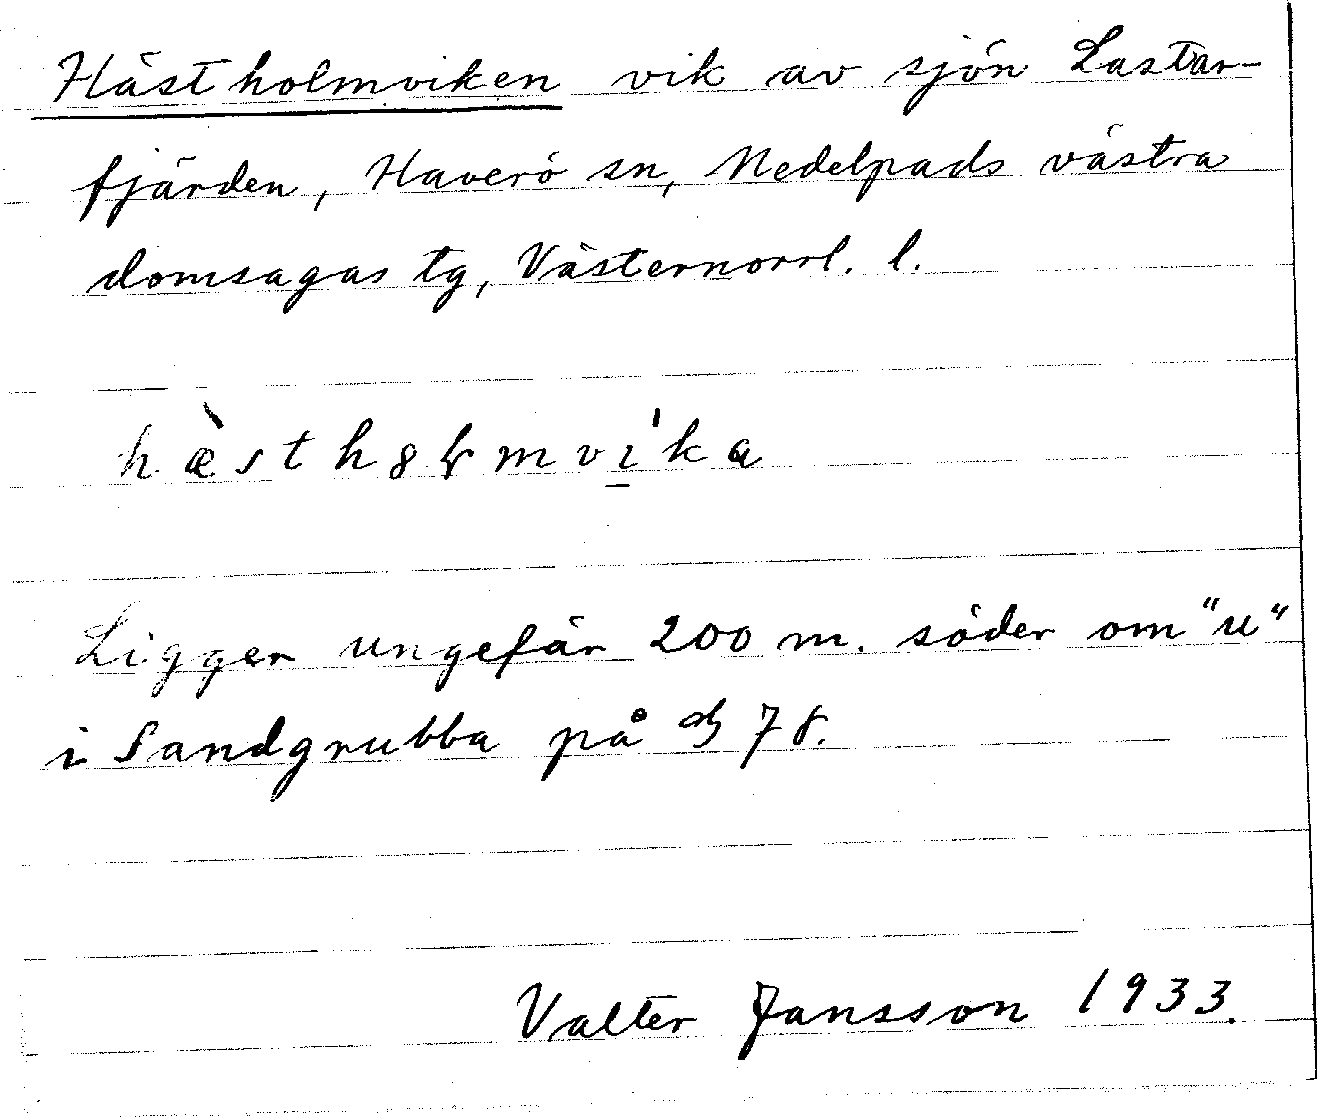 Hästholmviken vik av sjön Lastar-
fjärden, Haverö sn, Medelpads västra
domsagas tg, Västernorrl. l.
hæ̀sth8ɽmvi̱ka
Ligger ungefär 200 m. söder om "u"
i Sandgrubba på 78.
Valter Jansson 1933.